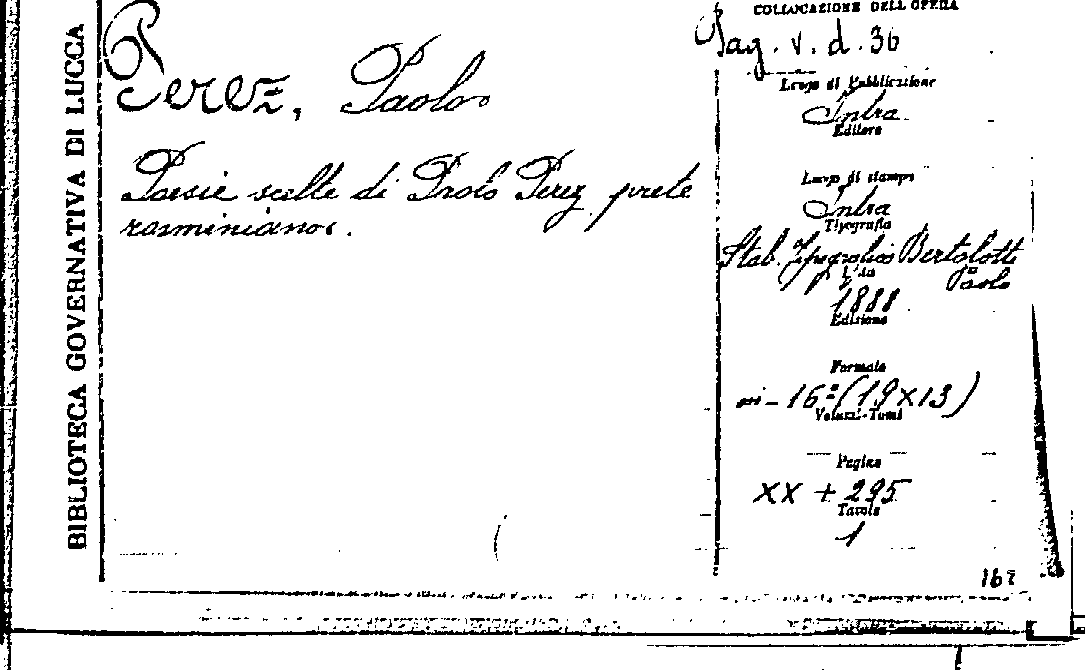 BIBLIOTECA GOVERNATIVA DI LUCCA
Perez, Paolo
Poesie scelte di Paolo Perez prete
rosminiano.
COLLOCAZIONE DELL'OPERA
Pag. v. d. 36
Luogo di Pubblicazione
Intra
Editore
Luogo di stampa
Intra
Tipografia
Stab. Tipografico Bertolotti
Paolo
1888
Edizione
Formato
in-16º (19x13)
Volumi-Tomi
Pagine
XX + 295
Tavole
1